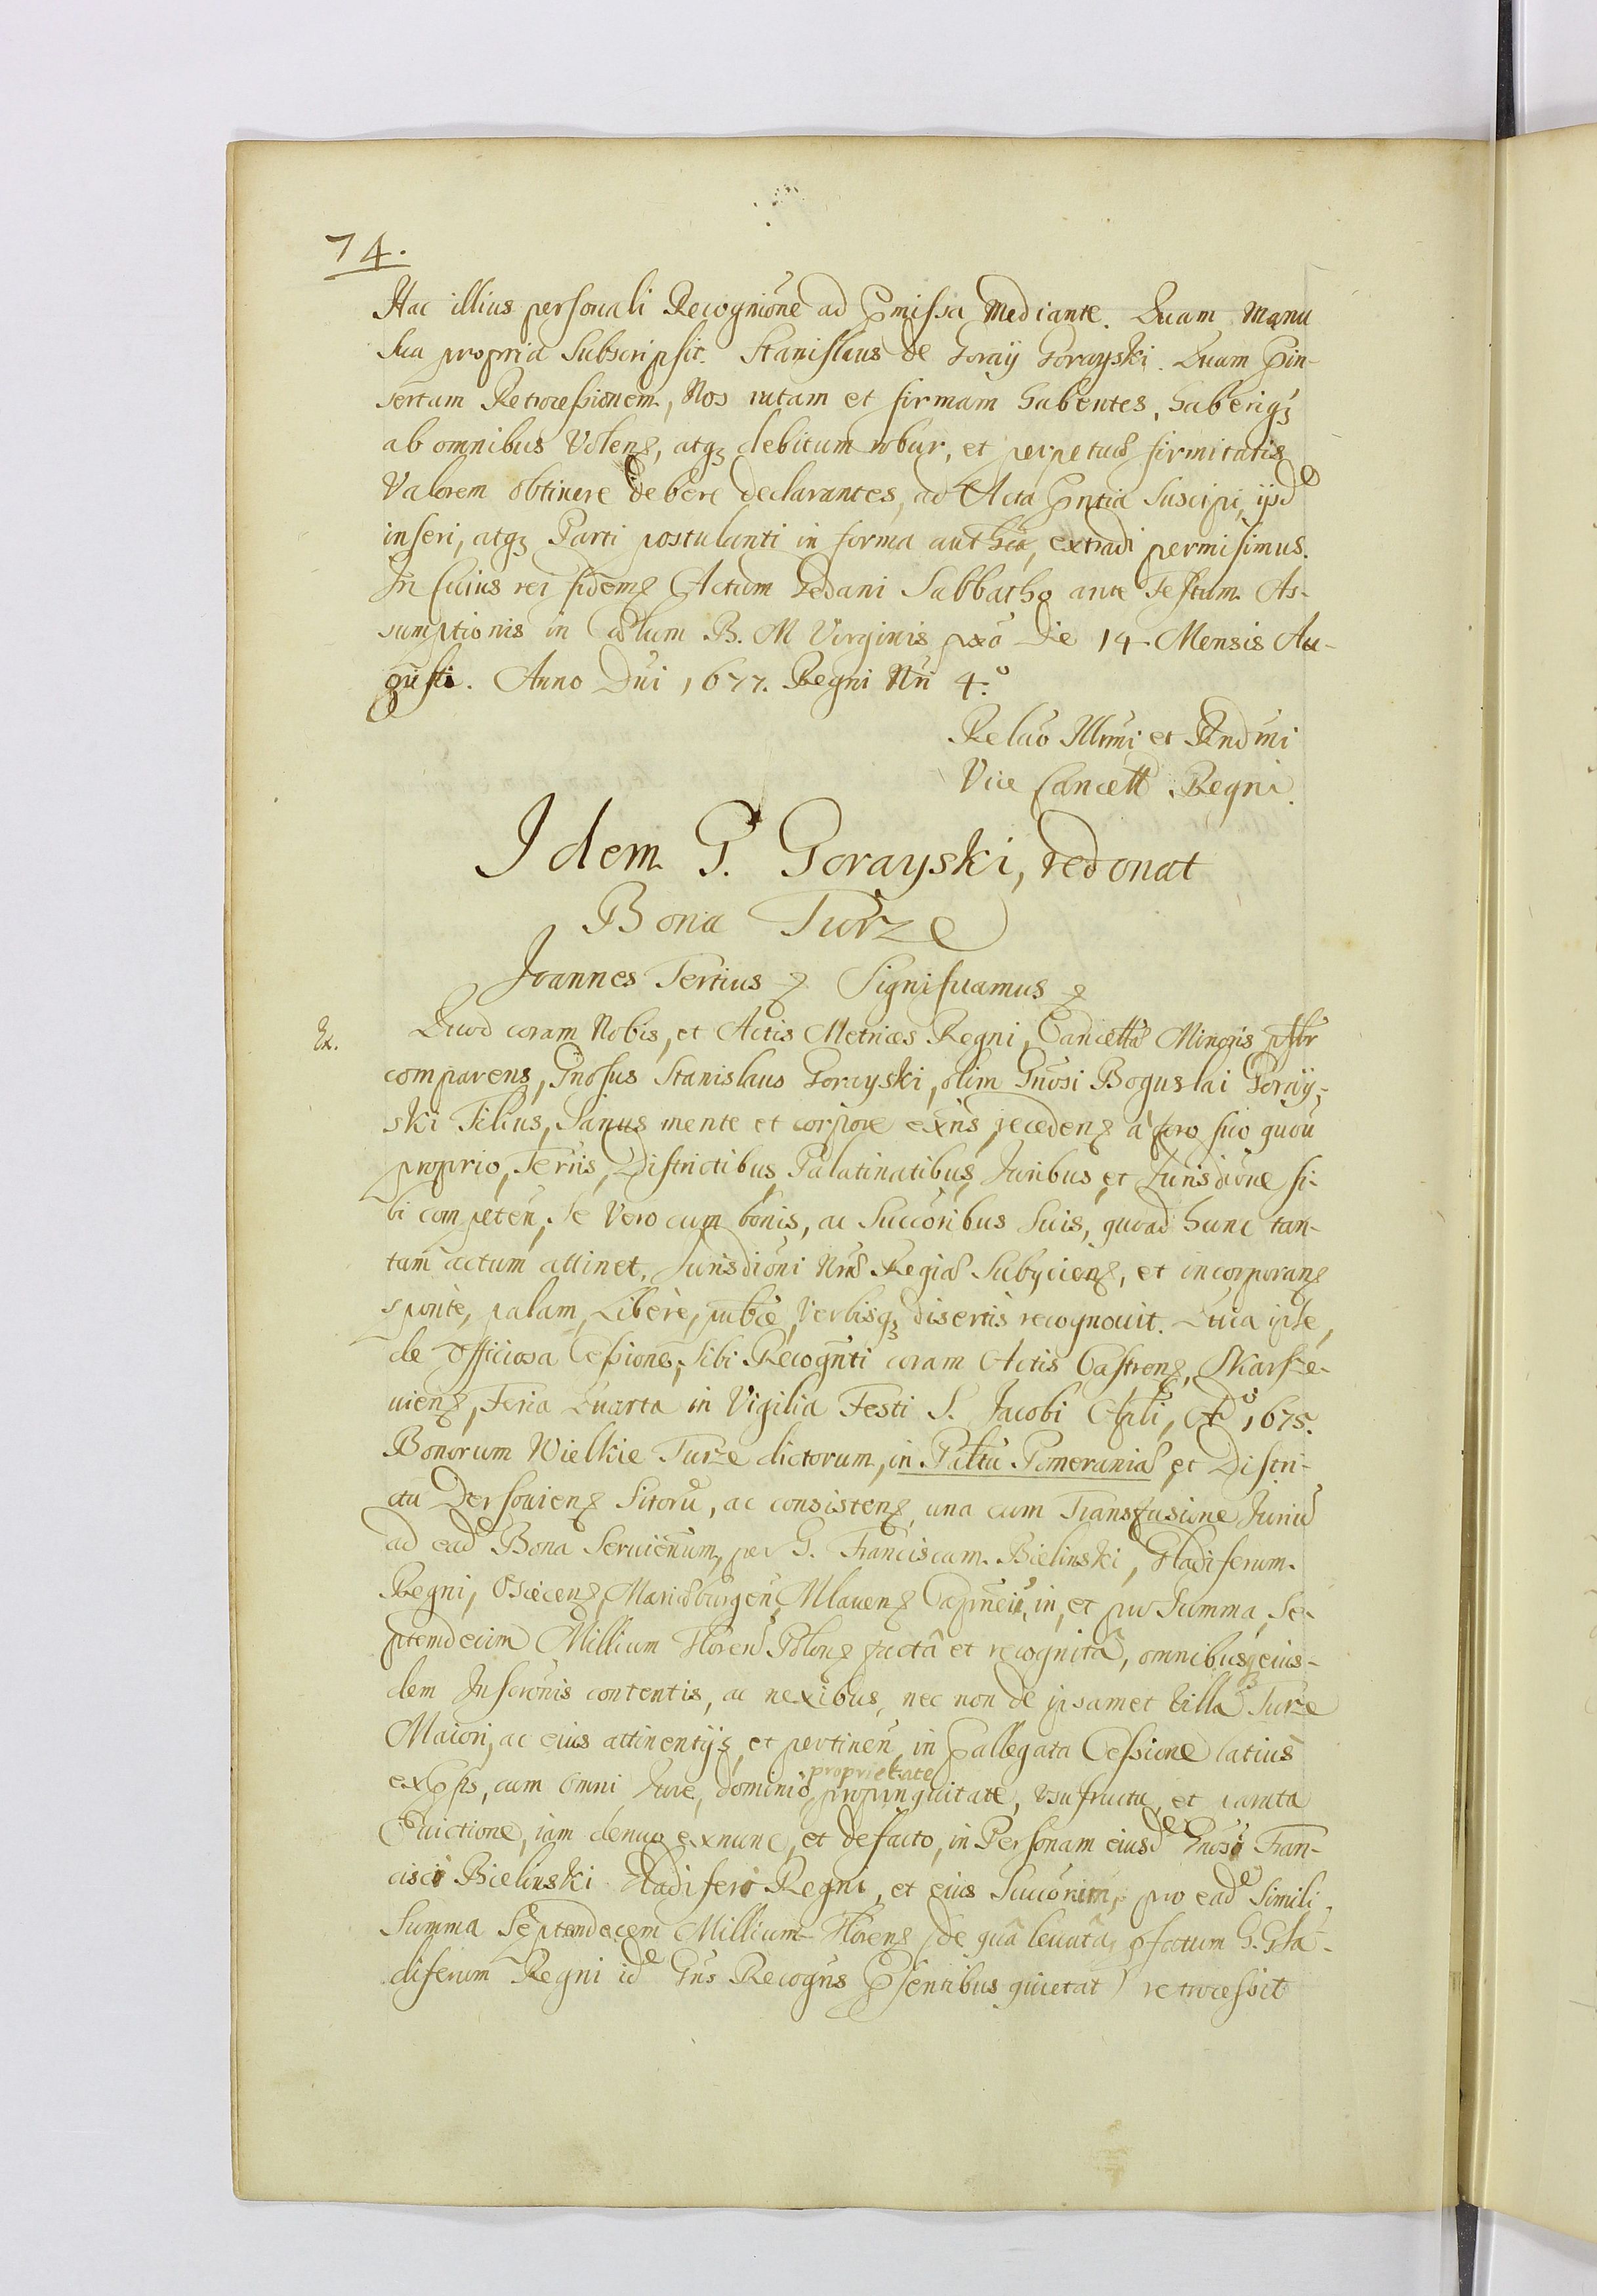 74.
Hac illius personali Recognitione ad Pmissa mediante. Quam Manu
sua propria Subscripsit. Stanislaus de Goray Gorayski. Quam Pin-
sertam Retrocessionem, Nos ratam et firmam habentes, haberiqz
ab omnibus Volenz, atqz debitum robur, et perpetuæ firmitatis
Valorem obtinere debere declarantes, ad Acta Pntia Suscipi, ijsd
inseri, atqz Parti postulanti in forma authca, extradi permisimus.
In Cuius rei fidemz Actum Gedani Sabbatho ante Festum As-
sumptionis in Cælum B. M Virginis pxo Die 14 Mensis Au-
gusti. Anno Dni 1677. Regni Nri 4.o
Relao Illrmi et Rndmi
Vice Cancell. Regni.
Idem G. Gorayski, redonat
Bona Turze
Joannes Tertius z Significamus z
Ex.
Quod coram Nobis, et Actis Metrices Regni, Cancellæ Minoris psltr
comparens, Gnosus Stanislaus Gorayski, olim Gnosi Boguslai Goray-
ski Filius, Sanus mente et corpore exns, recedenz a foro suo quou
proprio, Terris, Districtibus, Palatinatibus, Juribus et Jurisdione si-
bi competen, Se Vero cum bonis, ac Succoribus Suis, quoad hunc tan-
tum actum attinet, Jurisdioni Nræ Regiæ Subycienz, et incorporanz
sponte, palam, Libere, publce, Verbisqz disertis recognouit. Quia ipse,
de Officiosa Cessione, Sibi Recognti coram Actis Castrenz, Skarsze-
uienz, Feria Quarta in Vigilia Festi S. Jacobi Apli, Ao 1675.
Bonorum Wielkie Turze dictorum, in Paltu Pomeraniæ et Distri-
ctu Dersouienz Sitoru, ac consistenz, una cum Transfusione Juriu
ad ead Bona Seruienum, per G. Franciscum Bielinski, Gladiferum
Regni, Osiecenz, Mariæburgen, Mlauenz Capneu, in, et pro Summa, Se-
ptemdecim Millium Floren Polonz facta et recognita, omnibusqz eius-
dem Inscronis contentis, ac nexibus, nec non de ipsamet Villa Turze
Maiori, ac eius attinentijs, et pertinen, in Pallegata Cessione latius
exPssis, cum omni Jure, dominio, proprietate propinquitate, Vsufructu, et parata
Euictione, iam denuo exnunc, et defacto, in Personam eiusd Gnosi Fran-
cisci Bielinski Gladiferi Regni, et eius Succorum, pro ead Simili
Summa Septemdecem Millium Florenz (de qua leuata, pfatum G. Gla-
diferum Regni id Gns Recogns Psentibus quietat) retrocessit